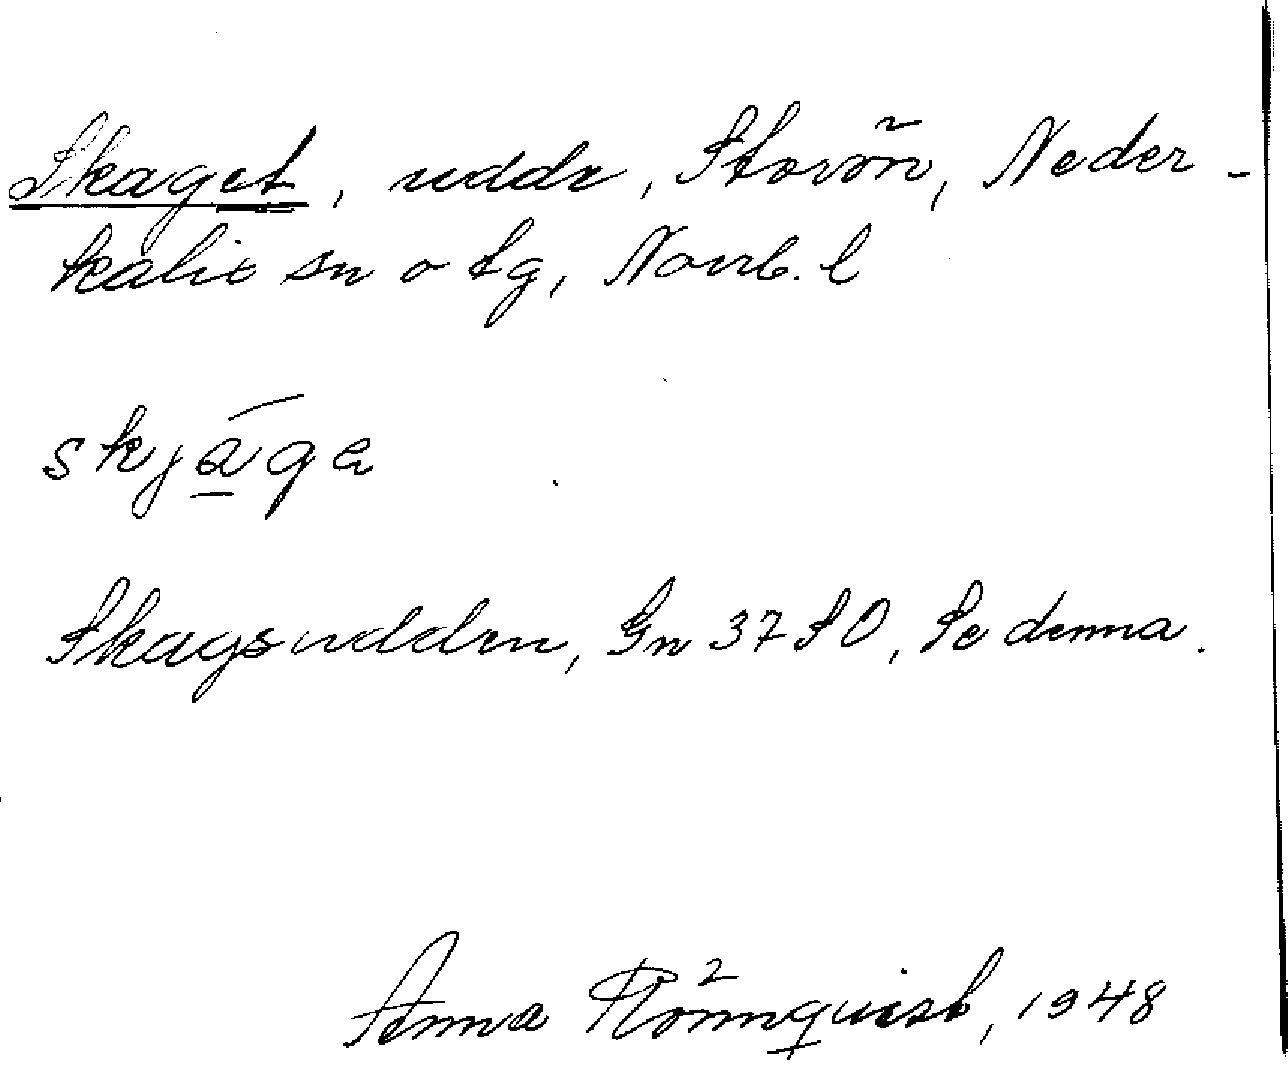 Skaget, udde, Storön, Neder-
kalix sn o tg, Norrb. l
skjāga
Skagsudden, Gn 37 SO, Se denna.
Anna Rönnquist, 1948